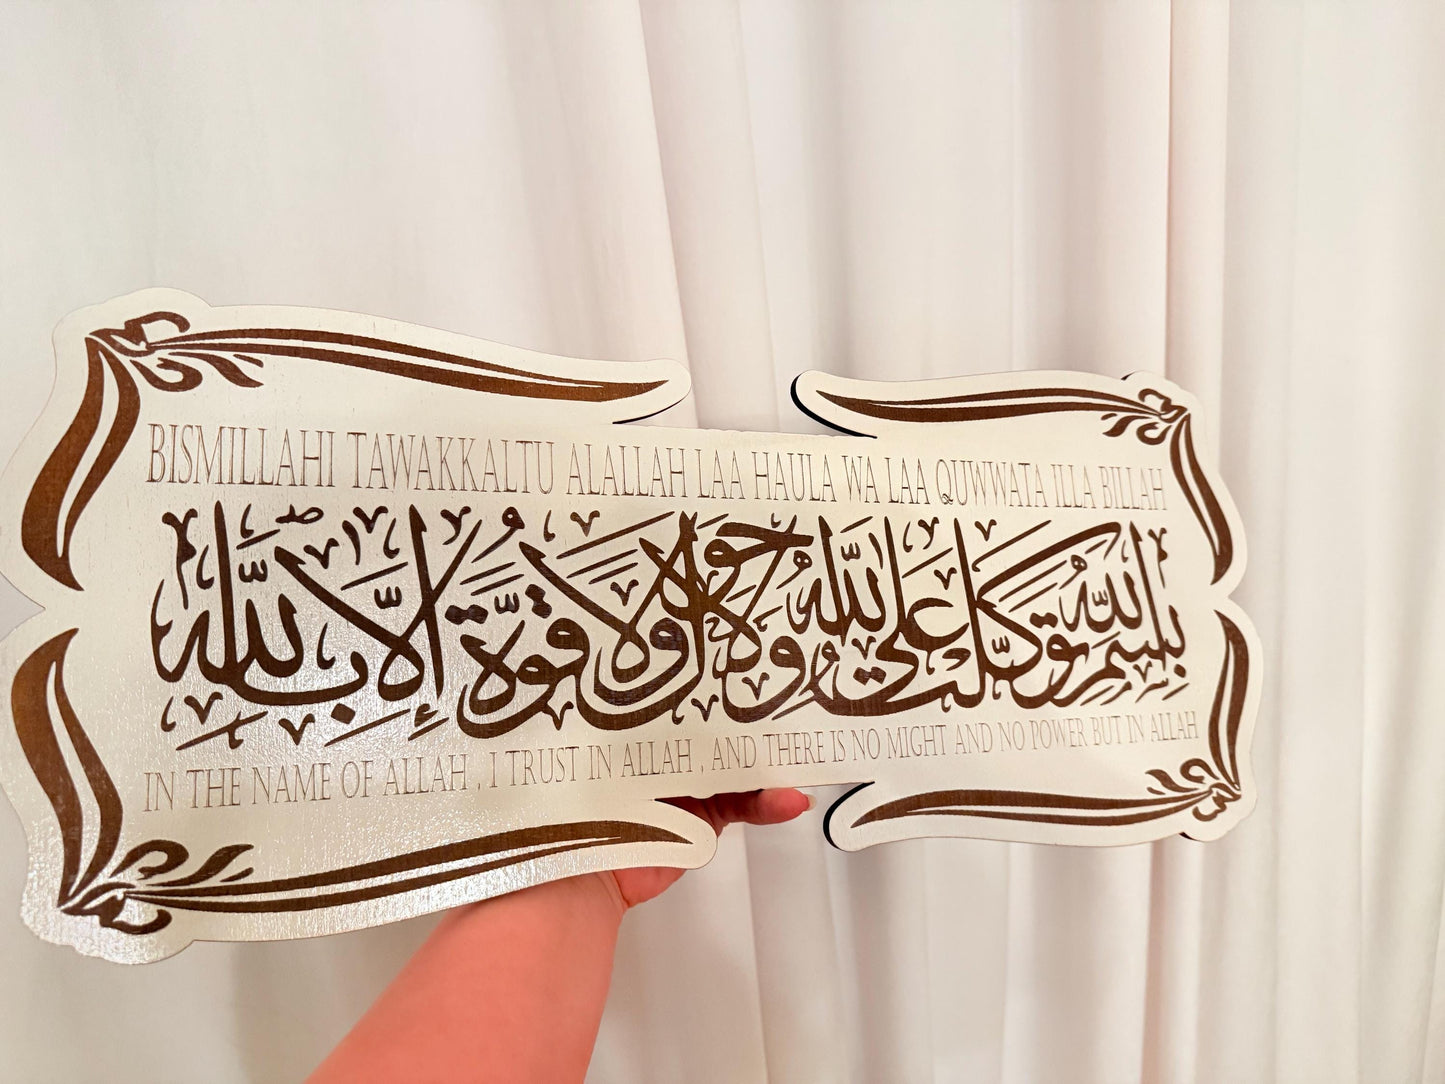 BISMILLAHI TAWAKKALTU ALALLAH LAA HAULA WA LAA QUWWATA ILLA BILLAH
بِسْمِ اللَّهِ تَوَكَّلْتُ عَلَى اللَّهِ وَلَا حَوْلَ وَلَا قُوَّةَ إِلَّا بِاللَّهِ
IN THE NAME OF ALLAH , I TRUST IN ALLAH , AND THERE IS NO MIGHT AND NO POWER BUT IN ALLAH